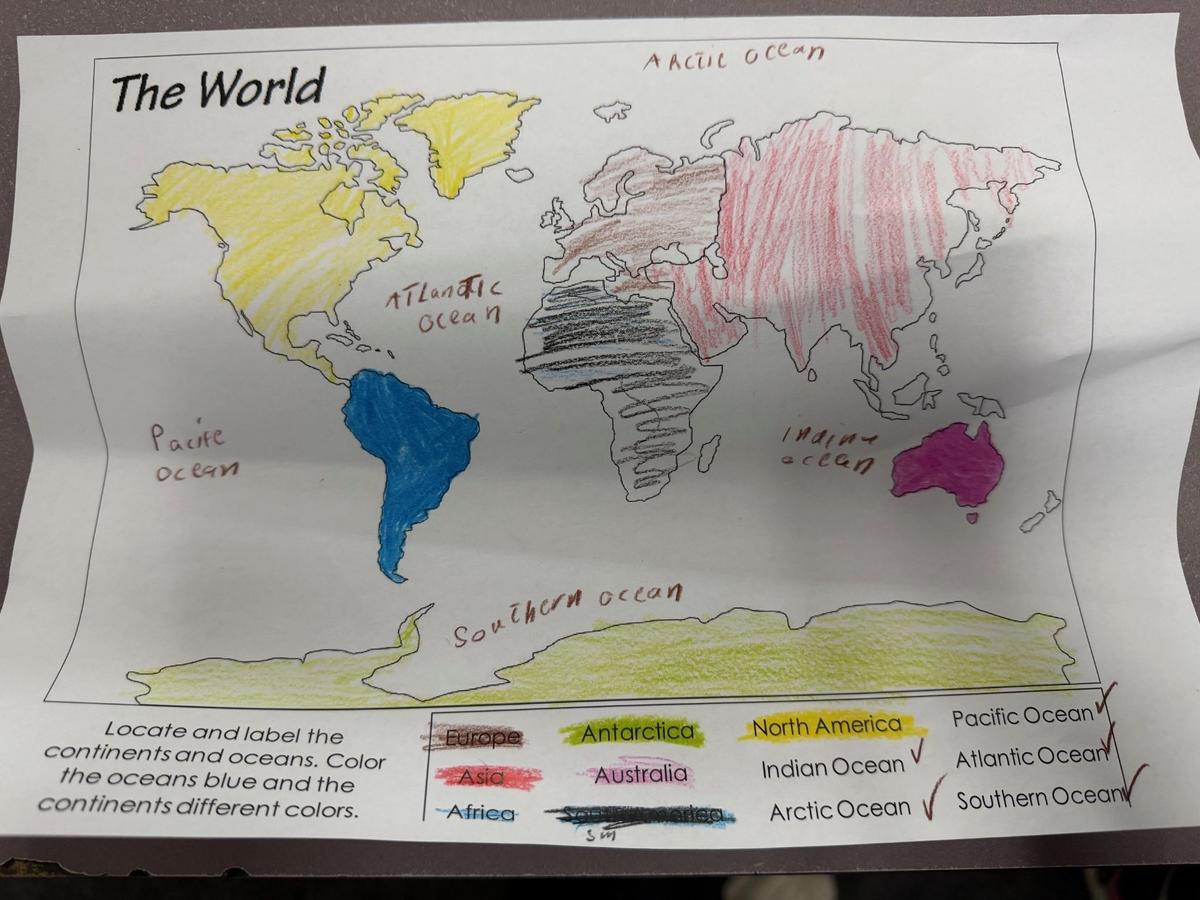 The World
Arctic ocean
Atlantic
ocean
Pacife
ocean
Indine
ocean
Southern ocean
Locate and label the
continents and oceans. Color
the oceans blue and the
continents different colors.
Europe
Antarctica
North America
Pacific Ocean
Asia
Australia
Indian Ocean
Atlantic Ocean
Africa
South America
Arctic Ocean
Southern Ocean